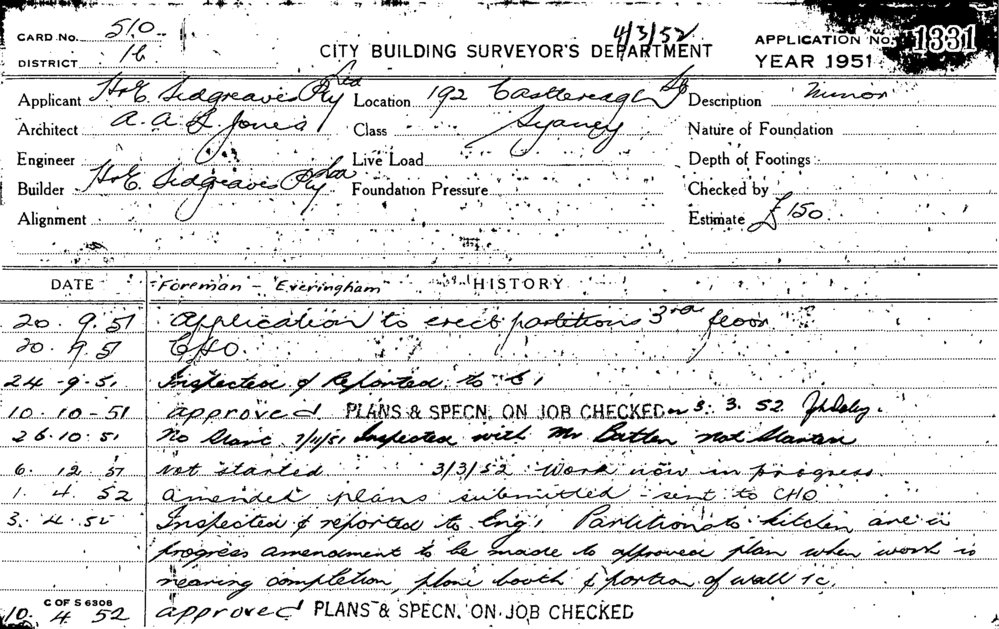 CARD No. 510
DISTRICT 16
4/3/52
CITY BUILDING SURVEYOR'S DEPARTMENT
APPLICATION No. 1331
YEAR 1951
Applicant H & E Sidgreaves Pty Ltd
Location 192 Castlereagh St
Description Minor
Architect A. A. L. Jones
Class Sydney
Nature of Foundation
Engineer
Live Load
Depth of Footings
Builder H & E Sidgreaves Pty Ltd
Foundation Pressure
Checked by
Alignment
Estimate £150
DATE Foreman - Everingham HISTORY
20.9.51 Application to erect partitions 3rd floor
20.9.51 CHO.
24-9-51 Inspected & Reported to
10.10-51 approved PLANS & SPECN. ON JOB CHECKED 3.3.52
26.10.51 No 7/11/51 Inspected with Mr not started
6.12.51 not started 3/3/52 Work now in progress
1.4.52 amended plans submitted - sent to CHO
3.4.52 Inspected & reported to Eng. Partitions to kitchen are in
progress amendment to be made to approved plan when work is
nearing completion, phone booth & portion of wall
C OF S 6308
10.4.52 approved PLANS & SPECN. ON JOB CHECKED